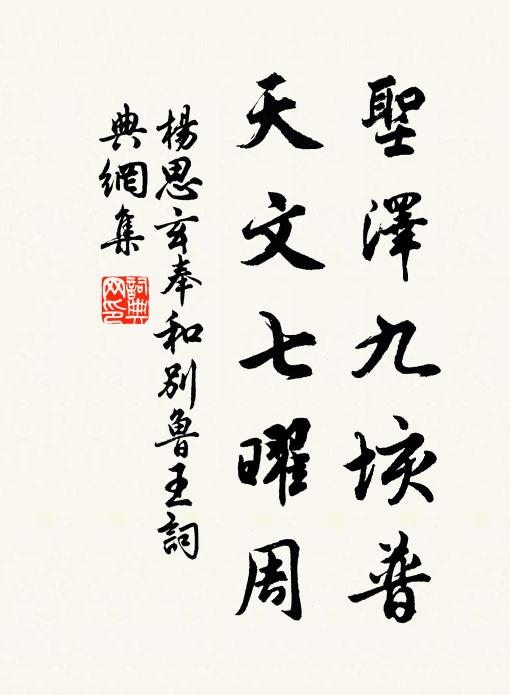 聖澤九垓普
天文七曜周
楊思玄奉和別魯王詞
典網集
詞典網印